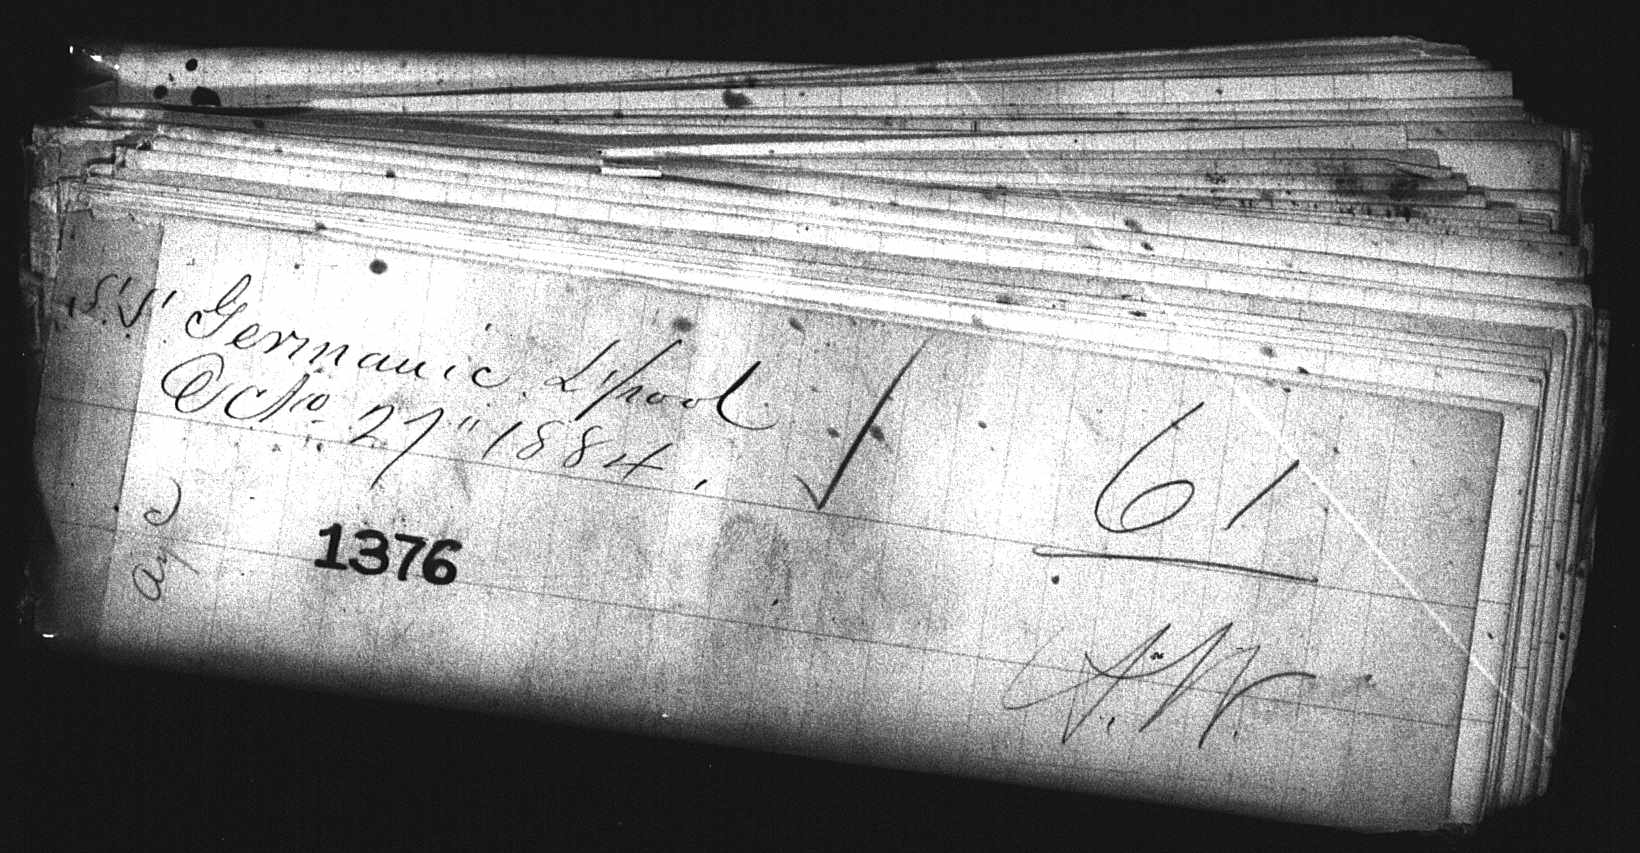 S.S. Germanic L'pool
Octo 27" 1884.
61
1376